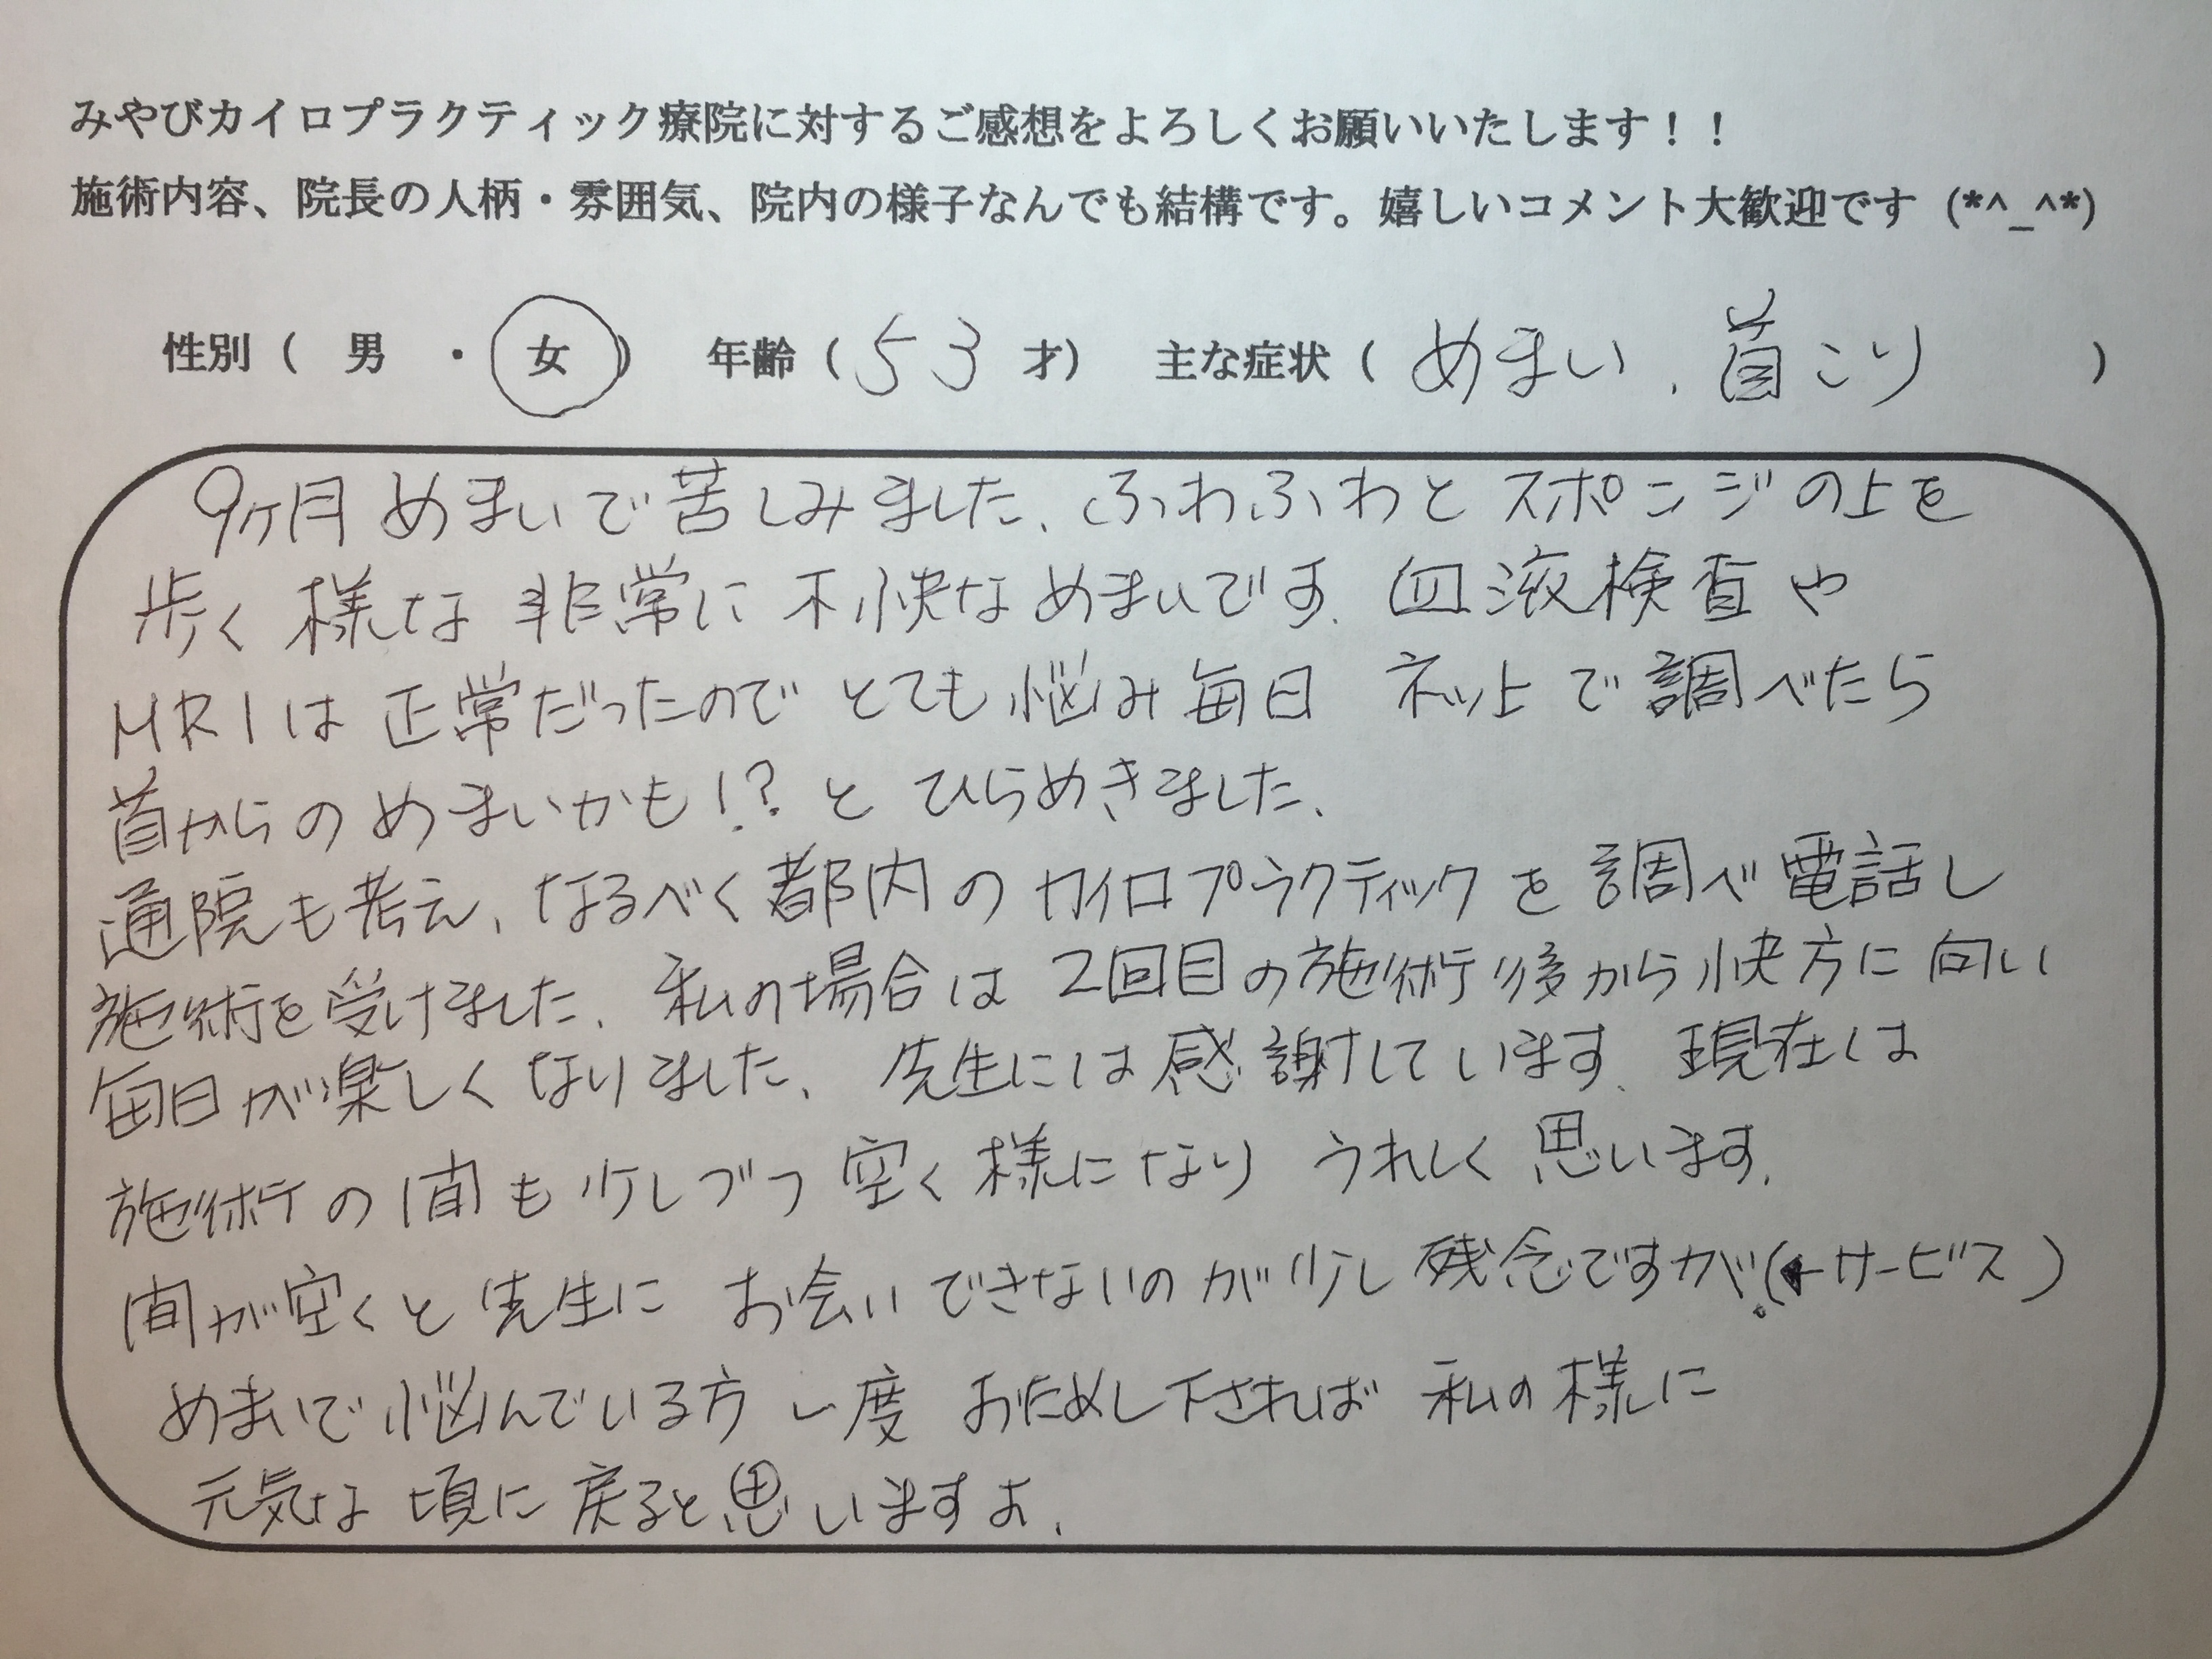 みやびカイロプラクティック療院に対するご感想をよろしくお願いいたします！！
施術内容、院長の人柄・雰囲気、院内の様子なんでも結構です。嬉しいコメント大歓迎です (*^_^*)
性別（ 男 ・ 女 ） 年齢（ 53 才） 主な症状（ めまい、首こり ）
9ヶ月 めまいで苦しみました、ふわふわと スポンジの上を
歩く 様な 非常に 不快な めまいです、血液検査や
MRIは 正常だったので とても 悩み 毎日 ネットで調べたら
首からの めまいかも!? と ひらめきました、
通院も考え、なるべく都内の カイロプラクティックを調べ電話し
施術を受けました、私の場合は 2回目の施術後から快方に向い
毎日が楽しく なりました、先生には感謝しています、現在は
施術の間も少しづつ空く様になり うれしく思います、
間が空くと先生に お会いできないのが少し残念ですが。(←サービス)
めまいで悩んでいる方 一度 おためし下されば 私の様に
元気な 頃に戻ると思いますよ、